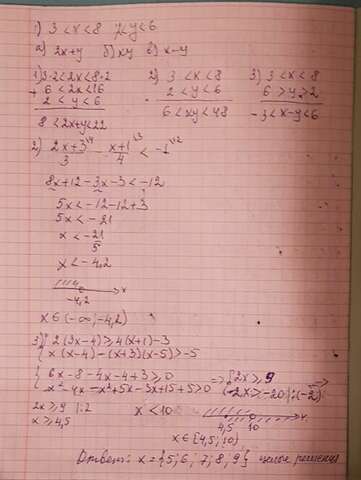 1) 3 < x < 8   2 < y < 6
а) 2x+y   б) xy   в) x-y
1) 3·2<2x<8·2   2) 3 < x < 8   3) 3 < x < 8
+ 6 < 2x < 16   · 2 < y < 6   6 > y > 2
2 < y < 6   6 < xy < 48   -3 < x-y < 6
8 < 2x+y < 22
2) (2x+3)/3 - (x+1)/4 < -1
8x+12-3x-3 < -12
5x < -12-12+3
5x < -21
x < -21/5
x < -4,2
-4,2   x
x∈(-∞; -4,2)
3) { 2(3x-4) ≥ 4(x+1)-3
{ x(x-4)-(x+3)(x-5) > -5
{ 6x-8-4x-4+3 ≥ 0   => { 2x ≥ 9
{ x²-4x-x²+5x-3x+15+5 > 0   { -2x ≥ -20 |:(-2)
2x ≥ 9 |:2   x < 10
x ≥ 4,5   4,5   10   x
x∈[4,5; 10)
Ответ: x = {5; 6; 7; 8; 9} целое решение